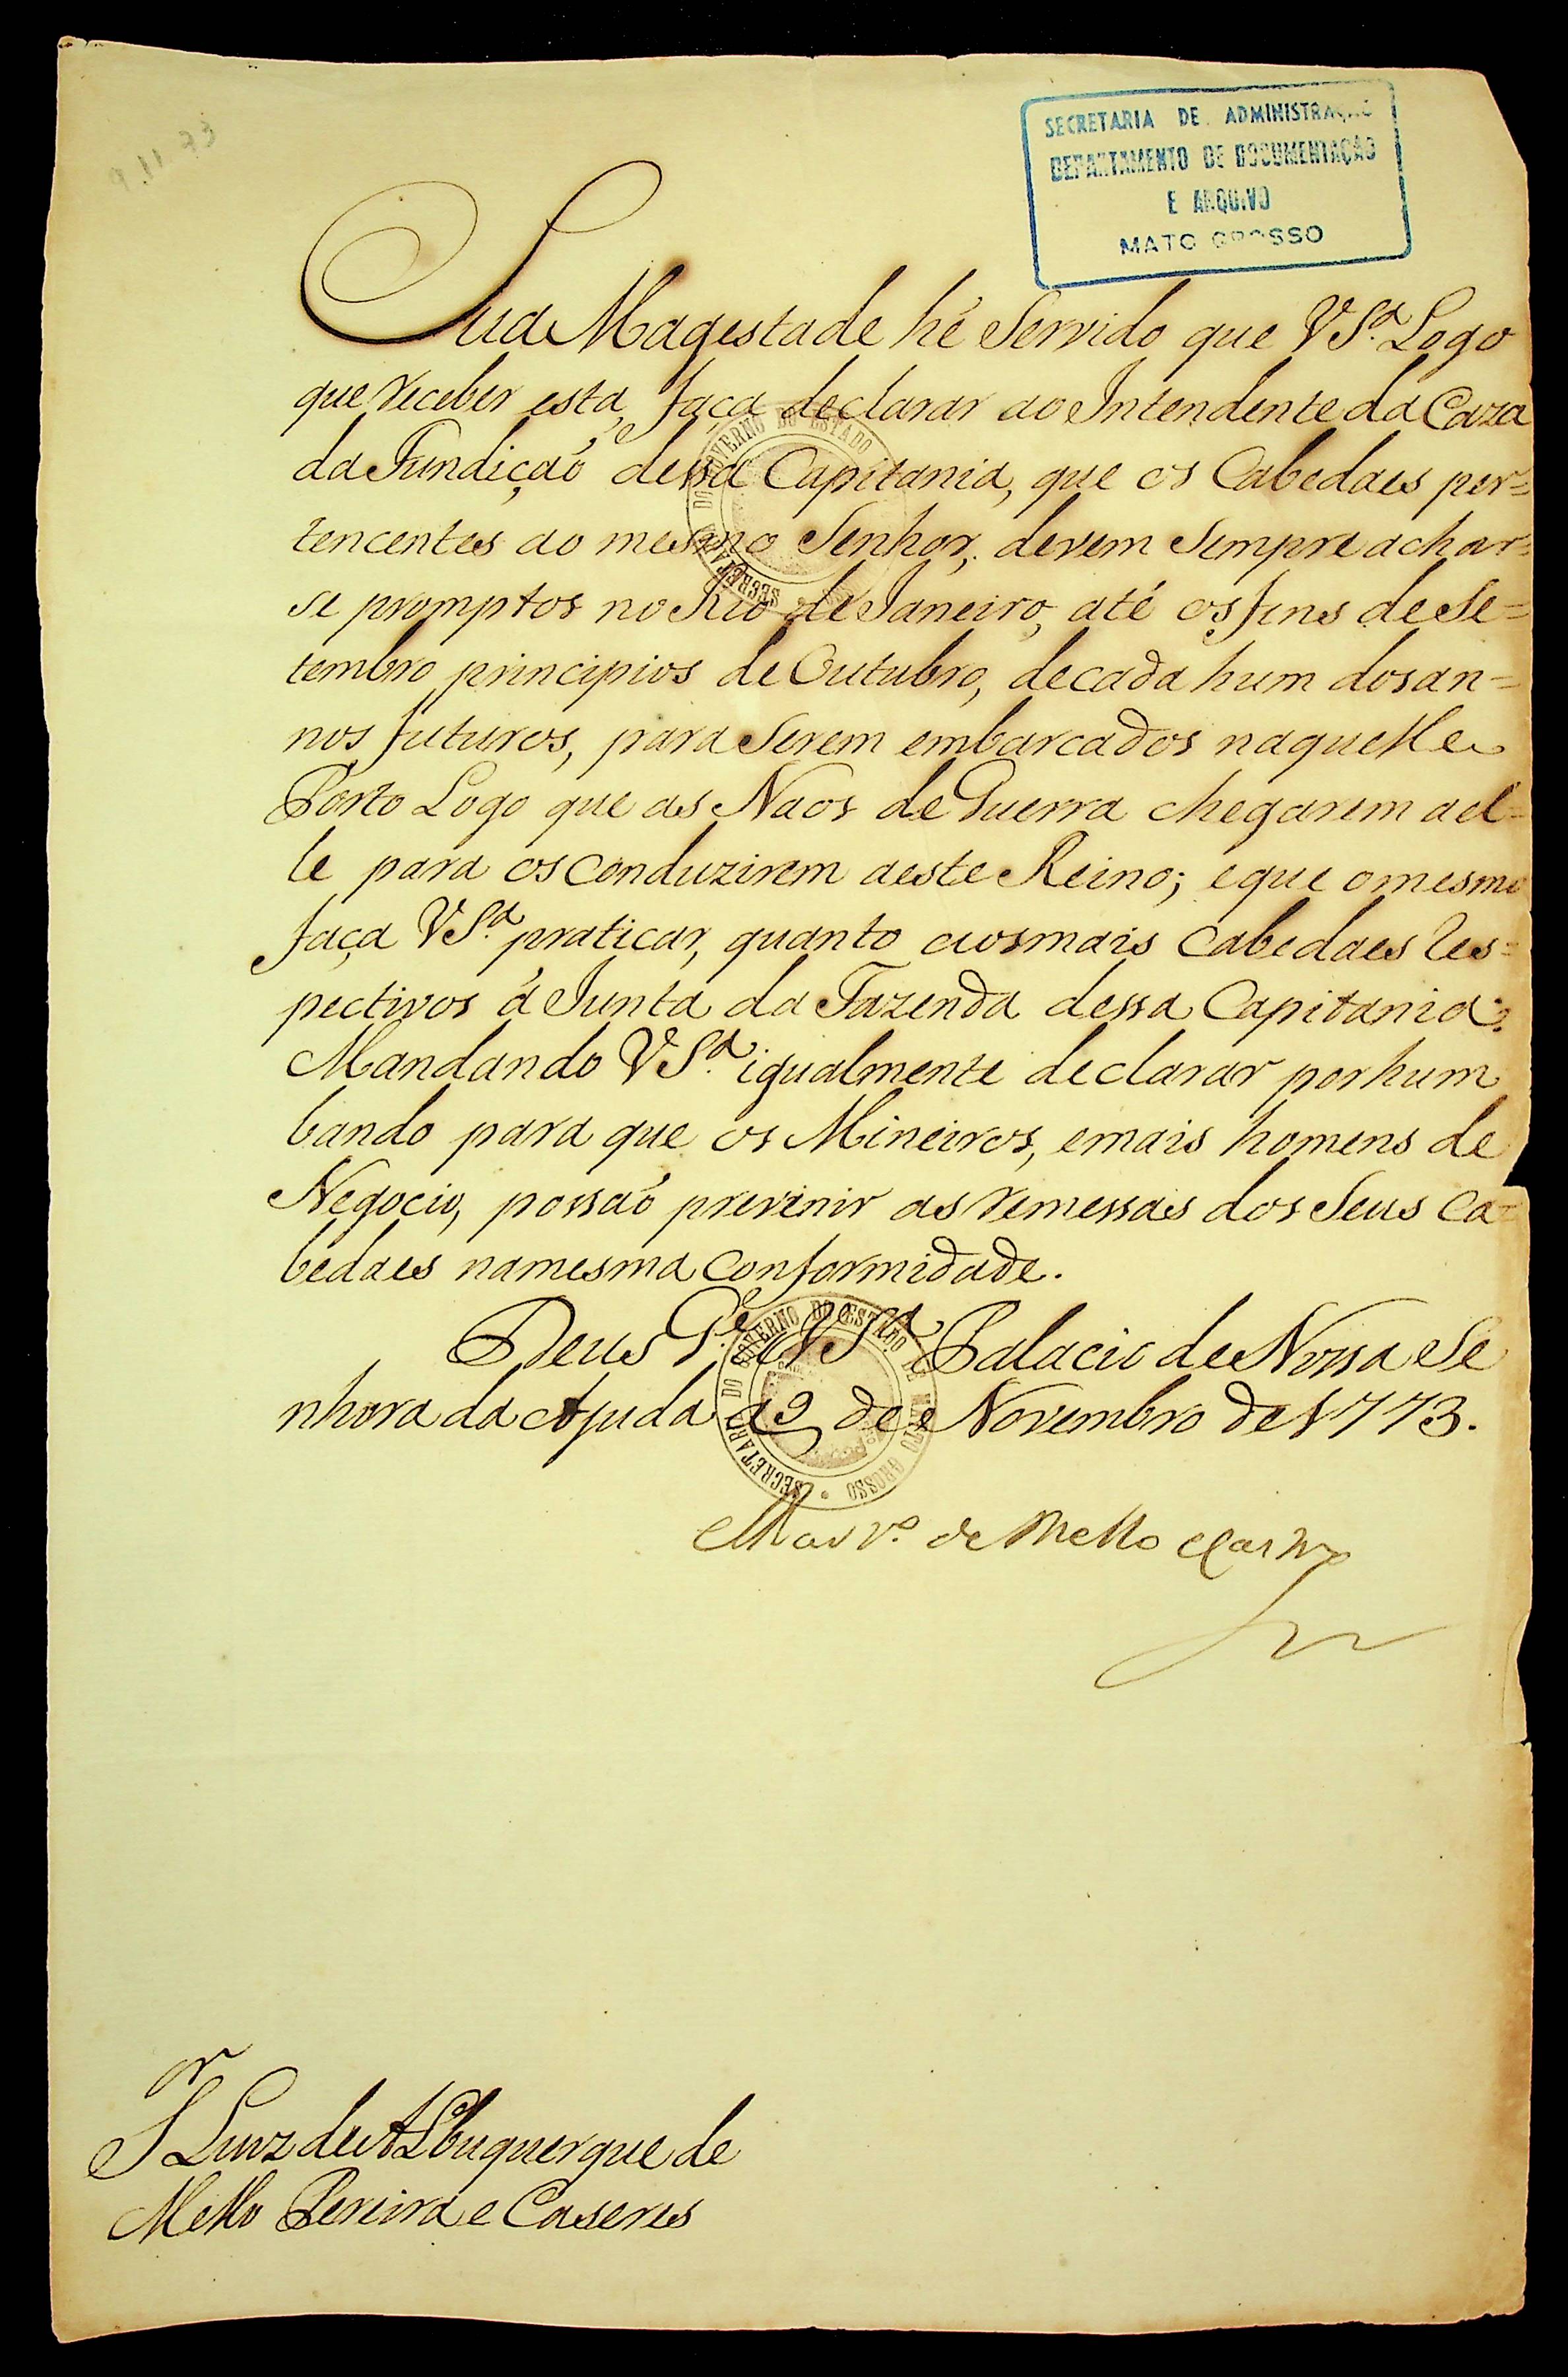 9.11.73
SECRETARIA DE ADMINISTRAÇÃO
DEPARTAMENTO DE DOCUMENTAÇÃO
E ARQUIVO
MATO GROSSO
Sua Magestade hé Servido que VSª. Logo
que receber esta, faça declarar ao Intendente da Caza
da Fundiçaõ dessa Capitania, que os Cabedaes per=
tencentes ao mesmo Senhor, devem Sempre achar=
se promptos no Rio de Janeiro, até os fins de Se=
tembro principios de Outubro, de cada hum dos an=
nos futuros, para Serem embarcados naquelle
Porto Logo que as Naos de Guerra chegarem a el=
le para os conduzirem a este Reino; e que o mesmo
faça VSª. praticar, quanto aos mais Cabedaes Res=
pectivos á Junta da Fazenda dessa Capitania:
Mandando VSª. igualmente declarar por hum
bando para que os Mineiros, e mais homens de
Negocio, possaõ prevenir as remessas dos Seus Ca=
bedaes na mesma Conformidade.
Deus G.e a VSª. Palacio de Nossa Se
nhora da Ajuda a 9 de Novembro de 1773.
SECRETARIA DO GOVERNO DO ESTADO
SECRETARIA DO GOVERNO DO ESTADO DE MATTO GROSSO
Mar.º de Mello e Castro
S.or Luiz de Albuquerque de
Mello Pereira e Caseres